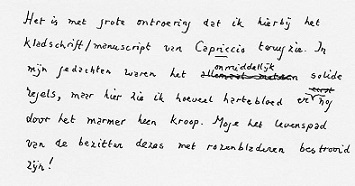 Het is met grote ontroering dat ik hierbij het
kladschrift/manuscript van Capriccio terugzie. In
mijn gedachten waren het onmiddellijk solide
regels, maar hier zie ik hoeveel hartebloed er nog
door het marmer heen kroop. Moge het levenspad
van de bezitter dezes met rozenbladeren bestrooid
zijn!